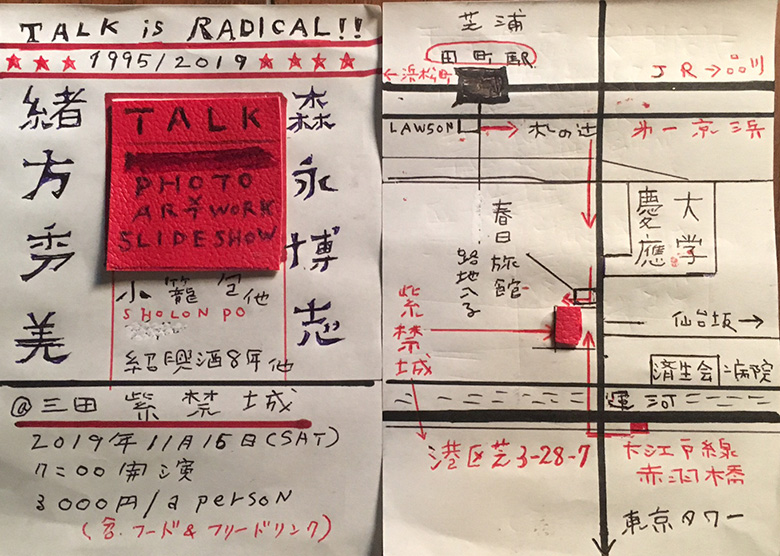 TALK is RADICAL!!
★★★ 1995/2019 ★★★★
緒方秀美
森永博志
TALK
PHOTO
ARTWORK
SLIDESHOW
小籠包他
SHOLON PO
紹興酒8年他
@三田 紫禁城
2019年11月16日(SAT)
7:00開演
3000円/a person
(含.フード&フリードリンク)
芝浦
田町駅
←浜松町
JR→品川
LAWSON
札の辻
第一京浜
慶應
大学
春日旅館
路地入る
紫禁城
仙台坂→
済生会病院
運河
港区芝3-28-7
大江戸線
赤羽橋
東京タワー